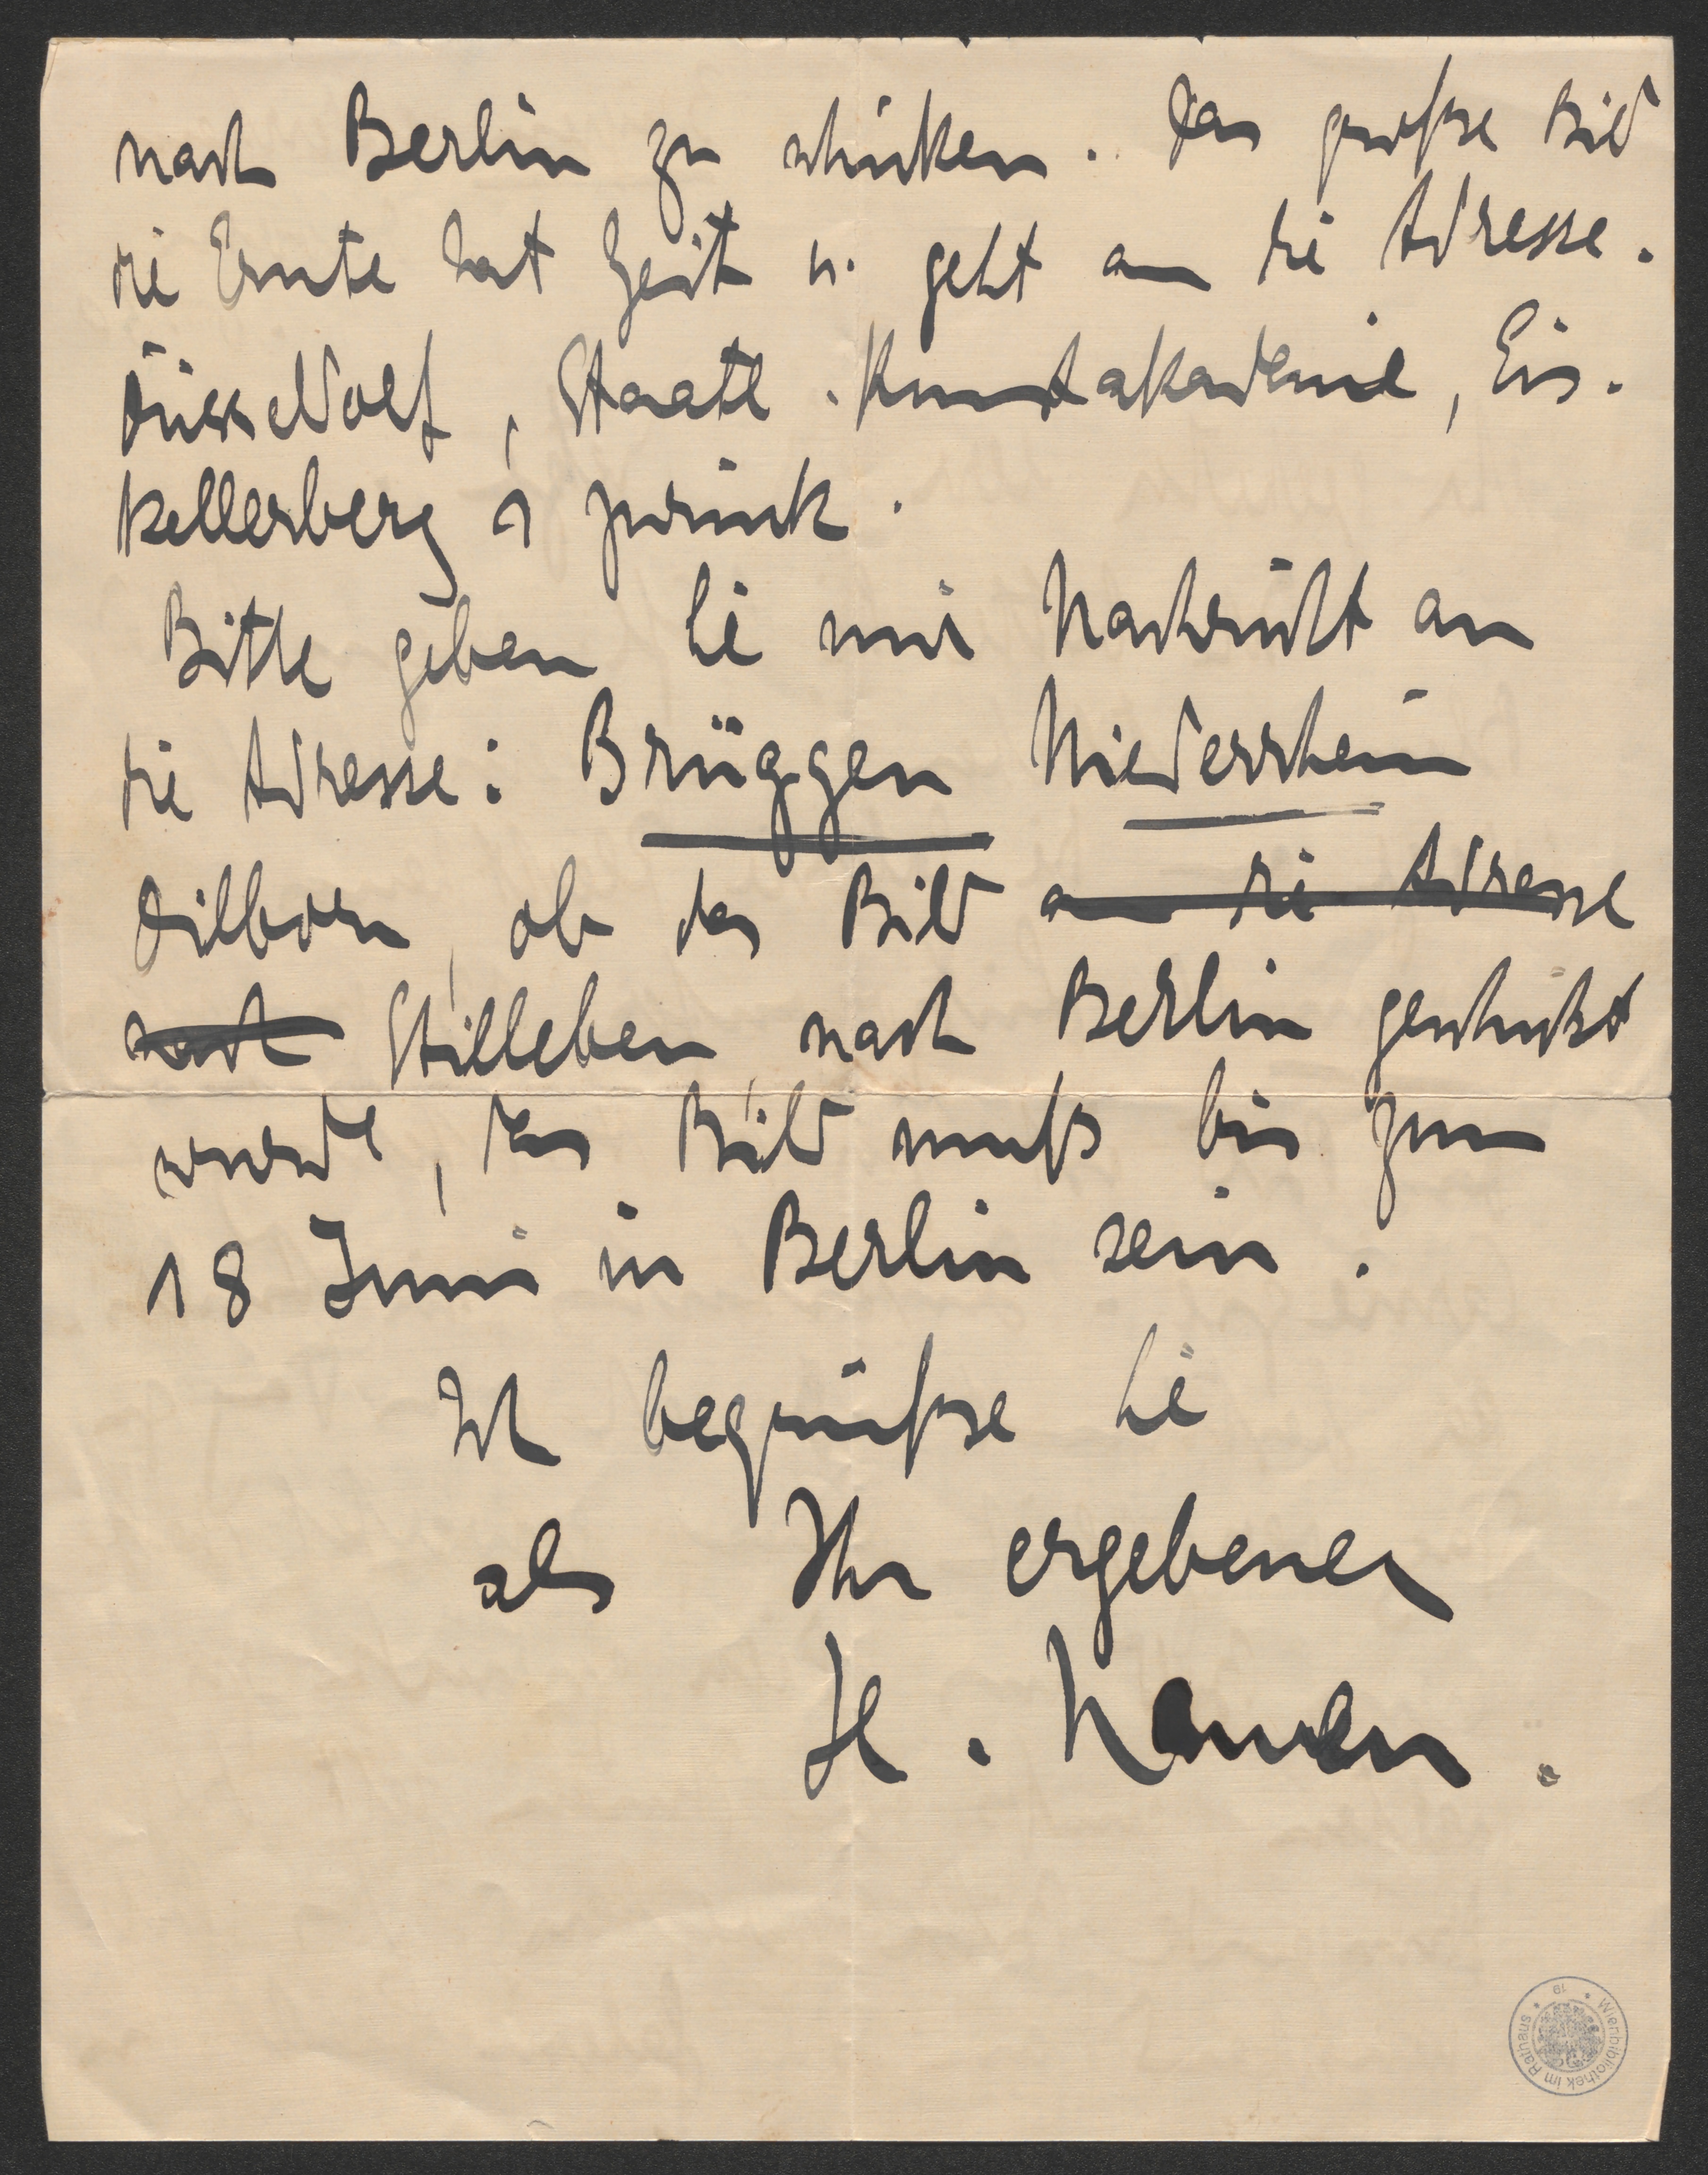 nach Berlin zu schicken. Das große Bild
die Ernte hat Zeit u. geht an die Adresse.
Düsseldorf, Staatl. Kunstakademie, Eis.
kellerberg 1 zurück.
Bitte geben Sie mir Nachricht an
die Adresse: Brüggen Niederrhein
Dilborn, ob das Bild an die Adresse
nach Stilleben nach Berlin geschickt
wurde, das Bild muß bis zum
18 Juni in Berlin sein.
Ich begrüße Sie
als Ihr ergebener
H. Nauen.
Wienbibliothek im Rathaus